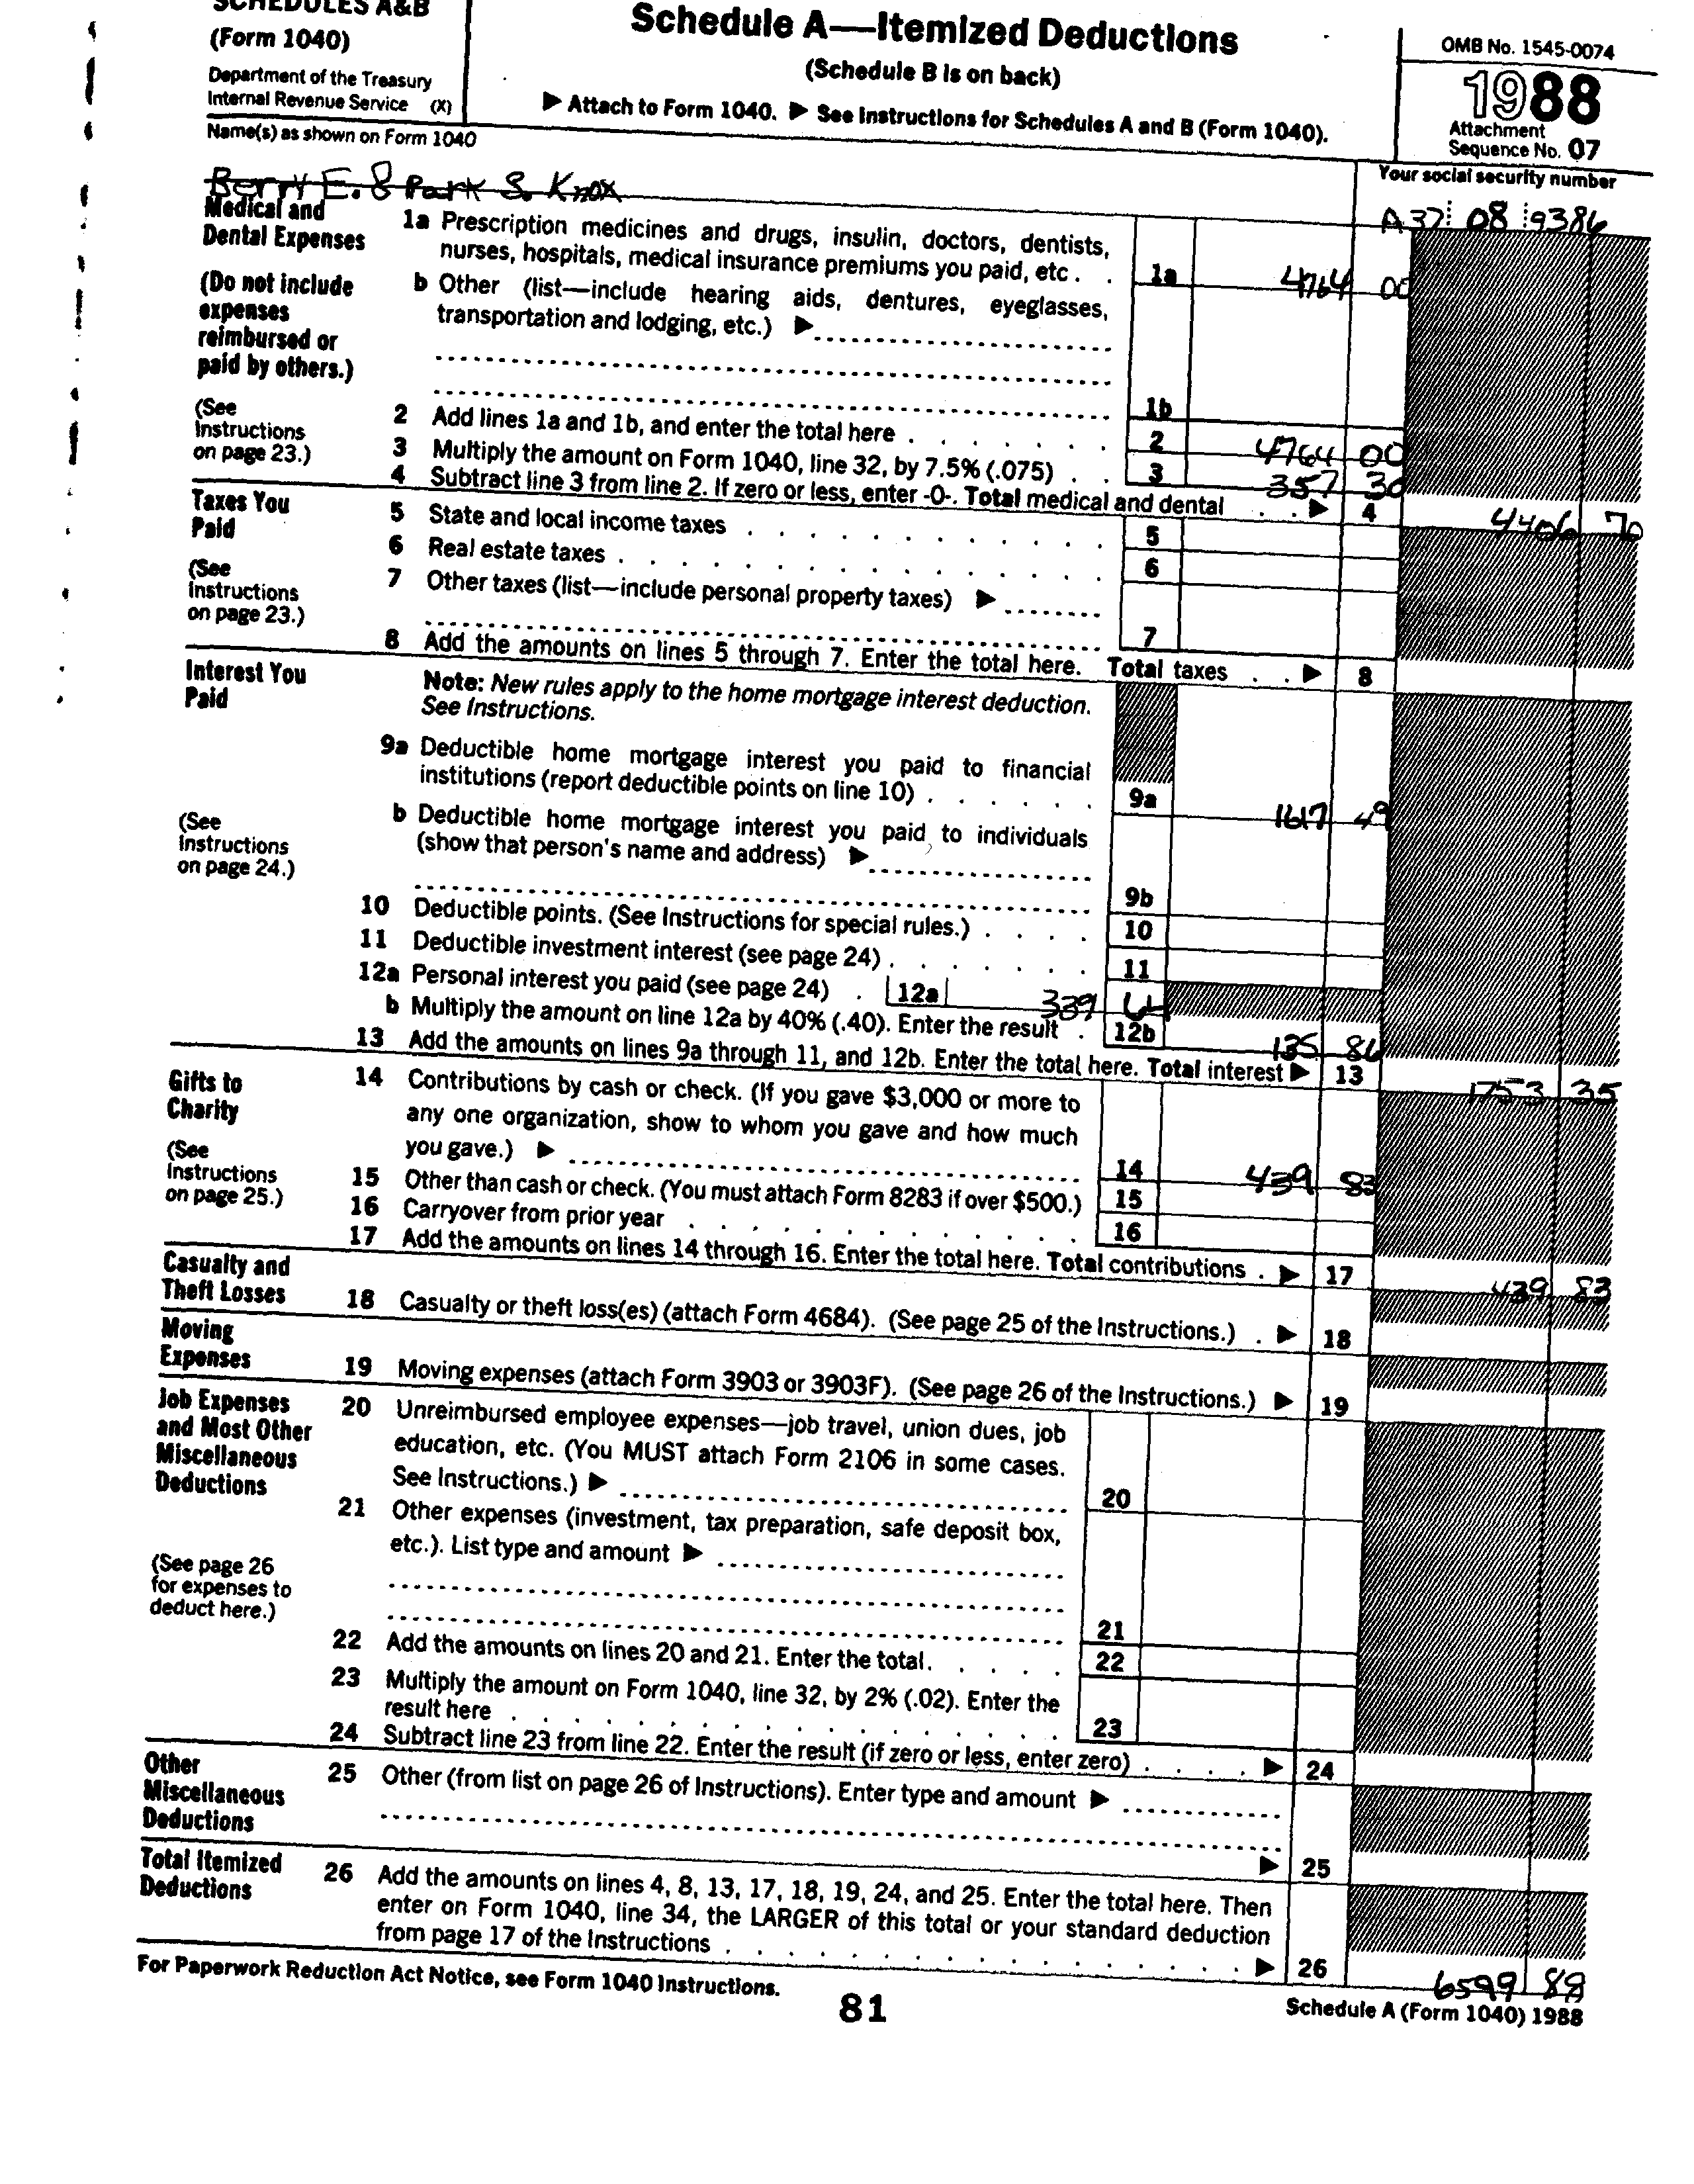 SCHEDULES A&B
(Form 1040)
Department of the Treasury
Internal Revenue Service (X)
Schedule A—Itemized Deductions
(Schedule B is on back)
▶ Attach to Form 1040. ▶ See Instructions for Schedules A and B (Form 1040).
OMB No. 1545-0074
1988
Attachment
Sequence No. 07
Name(s) as shown on Form 1040
Berry E. & Park S. Knox
Your social security number
A37 08 9386
Medical and
Dental Expenses
(Do not include
expenses
reimbursed or
paid by others.)
(See
Instructions
on page 23.)
1a Prescription medicines and drugs, insulin, doctors, dentists,
nurses, hospitals, medical insurance premiums you paid, etc . . 1a 4764 00
b Other (list—include hearing aids, dentures, eyeglasses,
transportation and lodging, etc.) ▶
1b
2 Add lines 1a and 1b, and enter the total here . . . . . . . 2 4764 00
3 Multiply the amount on Form 1040, line 32, by 7.5% (.075) . . 3 357 30
4 Subtract line 3 from line 2. If zero or less, enter -0-. Total medical and dental . . ▶ 4 4406 70
Taxes You
Paid
(See
Instructions
on page 23.)
5 State and local income taxes . . . . . . . . . . . . 5
6 Real estate taxes . . . . . . . . . . . . . . . . 6
7 Other taxes (list—include personal property taxes) ▶
7
8 Add the amounts on lines 5 through 7. Enter the total here. Total taxes . . ▶ 8
Interest You
Paid
(See
Instructions
on page 24.)
Note: New rules apply to the home mortgage interest deduction.
See Instructions.
9a Deductible home mortgage interest you paid to financial
institutions (report deductible points on line 10) . . . . . . 9a 1617 49
b Deductible home mortgage interest you paid to individuals
(show that person's name and address) ▶
9b
10 Deductible points. (See Instructions for special rules.) . . . . 10
11 Deductible investment interest (see page 24) . . . . . . . 11
12a Personal interest you paid (see page 24) . 12a 339 64
b Multiply the amount on line 12a by 40% (.40). Enter the result . 12b 135 86
13 Add the amounts on lines 9a through 11, and 12b. Enter the total here. Total interest ▶ 13 1753 35
Gifts to
Charity
(See
Instructions
on page 25.)
14 Contributions by cash or check. (If you gave $3,000 or more to
any one organization, show to whom you gave and how much
you gave.) ▶ 14 439 83
15 Other than cash or check. (You must attach Form 8283 if over $500.) 15
16 Carryover from prior year . . . . . . . . . . . . . 16
17 Add the amounts on lines 14 through 16. Enter the total here. Total contributions . ▶ 17 439 83
Casualty and
Theft Losses
18 Casualty or theft loss(es) (attach Form 4684). (See page 25 of the Instructions.) . ▶ 18
Moving
Expenses
19 Moving expenses (attach Form 3903 or 3903F). (See page 26 of the Instructions.) ▶ 19
Job Expenses
and Most Other
Miscellaneous
Deductions
(See page 26
for expenses to
deduct here.)
20 Unreimbursed employee expenses—job travel, union dues, job
education, etc. (You MUST attach Form 2106 in some cases.
See Instructions.) ▶ 20
21 Other expenses (investment, tax preparation, safe deposit box,
etc.). List type and amount ▶
21
22 Add the amounts on lines 20 and 21. Enter the total. . . . . . 22
23 Multiply the amount on Form 1040, line 32, by 2% (.02). Enter the
result here . . . . . . . . . . . . . . . . . . 23
24 Subtract line 23 from line 22. Enter the result (if zero or less, enter zero) . . . . ▶ 24
Other
Miscellaneous
Deductions
25 Other (from list on page 26 of Instructions). Enter type and amount ▶
▶ 25
Total Itemized
Deductions
26 Add the amounts on lines 4, 8, 13, 17, 18, 19, 24, and 25. Enter the total here. Then
enter on Form 1040, line 34, the LARGER of this total or your standard deduction
from page 17 of the Instructions . . . . . . . . . . . . . . . . . . ▶ 26 6599 88
For Paperwork Reduction Act Notice, see Form 1040 Instructions.
81
Schedule A (Form 1040) 1988